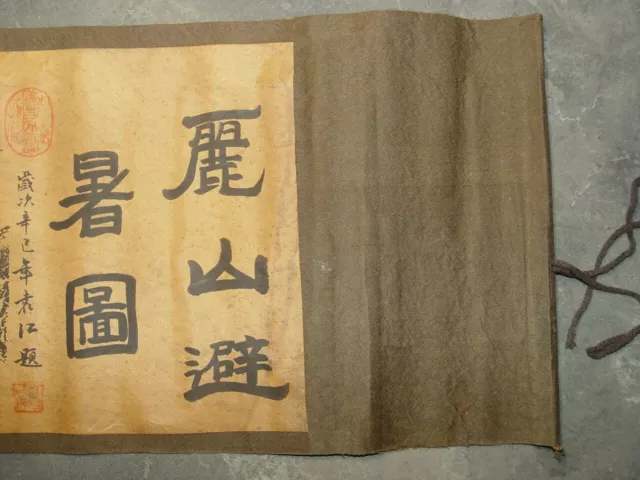 麗山避
暑圖
歲次辛巳年袁江題